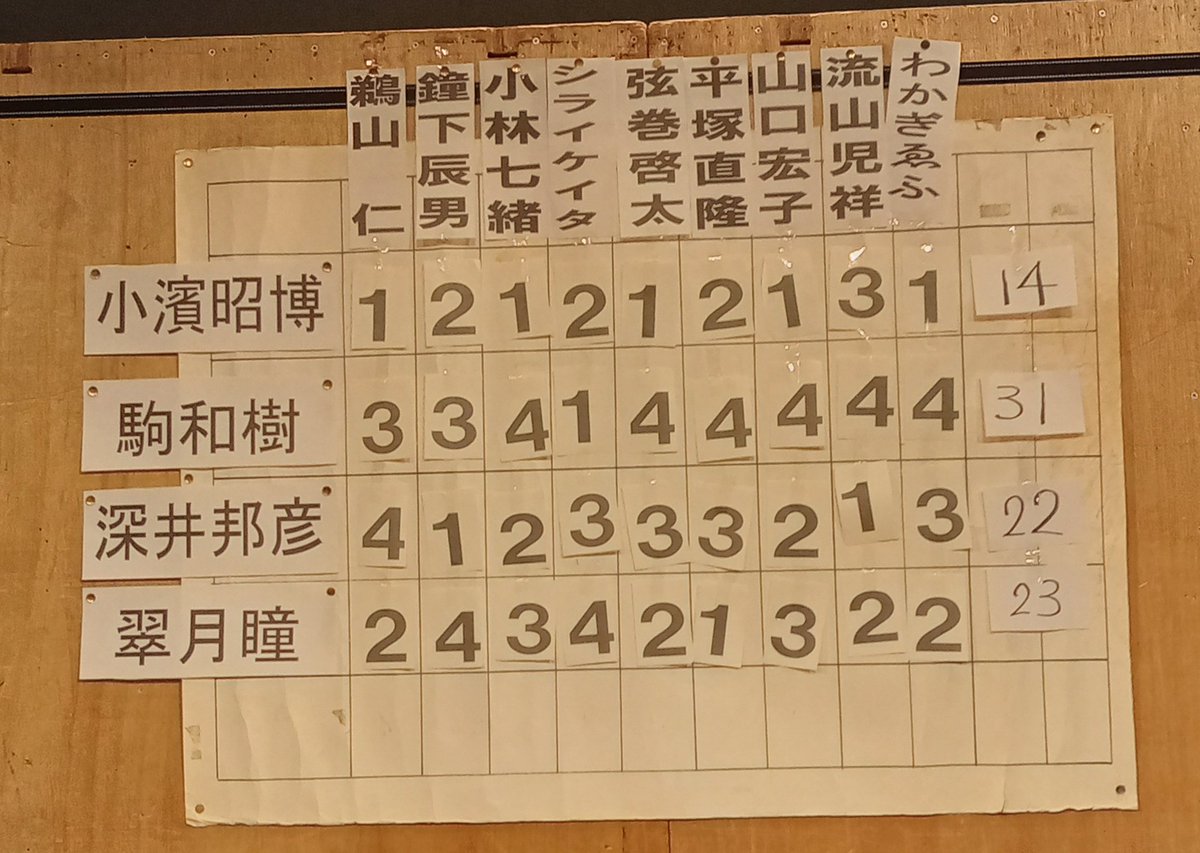 鵜山 仁 鐘下辰男 小林七緒 シライケイタ 弦巻啓太 平塚直隆 山口宏子 流山児祥 わかぎゑふ
小濱昭博 1 2 1 2 1 2 1 3 1 14
駒和樹 3 3 4 1 4 4 4 4 4 31
深井邦彦 4 1 2 3 3 3 2 1 3 22
翠月瞳 2 4 3 4 2 1 3 2 2 23